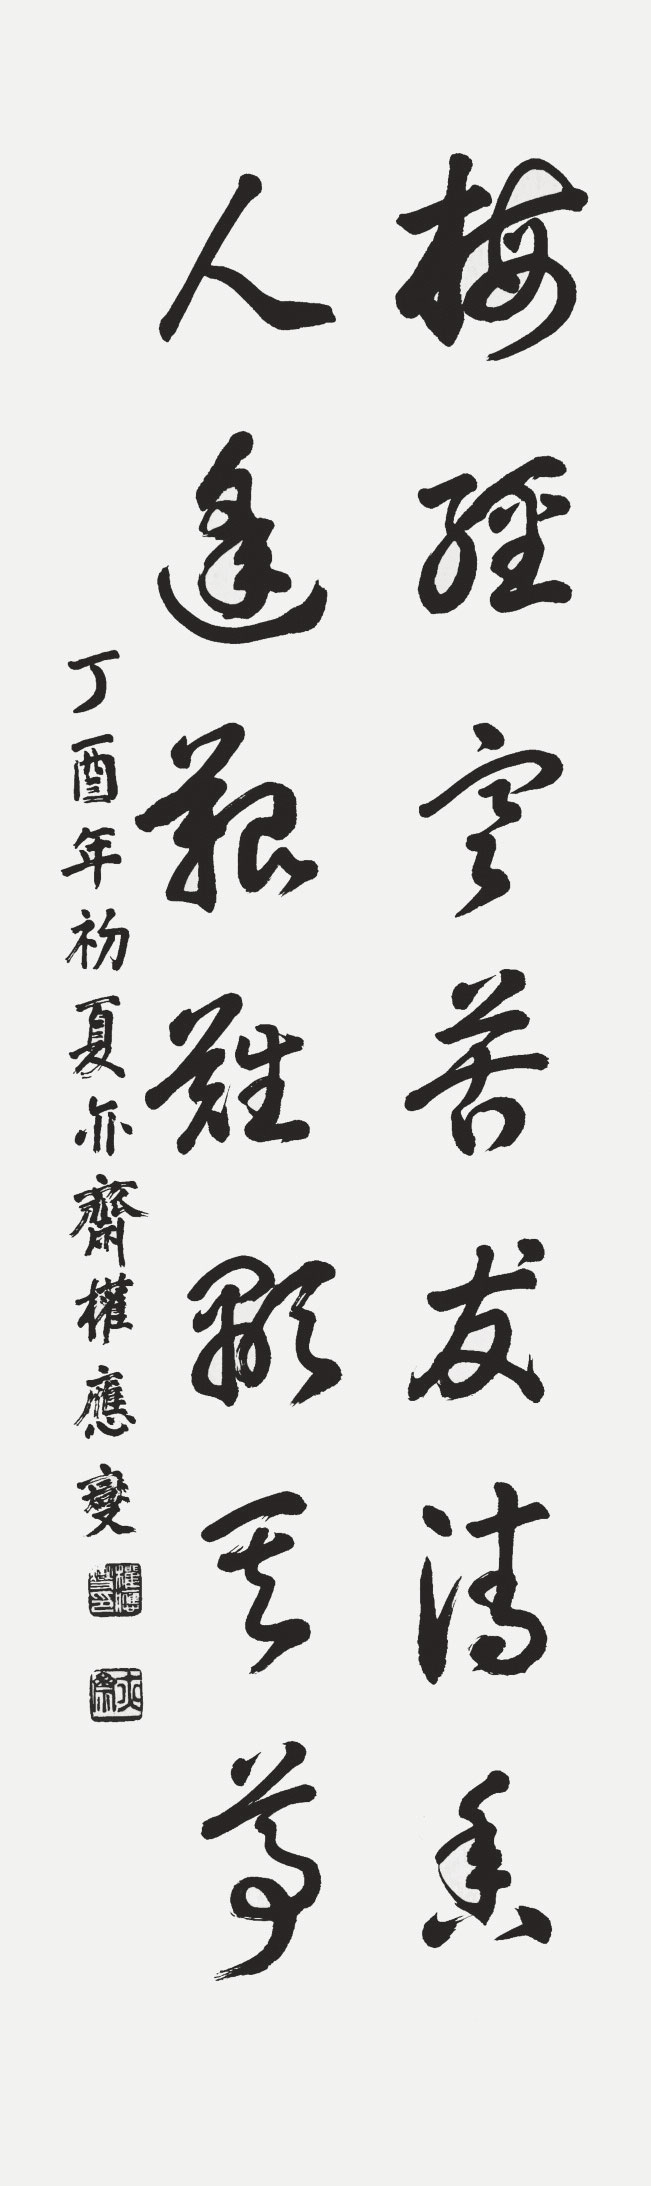 梅經寒苦發清香
人逢艱難顯其尊
丁酉年初夏亦齋權應燮